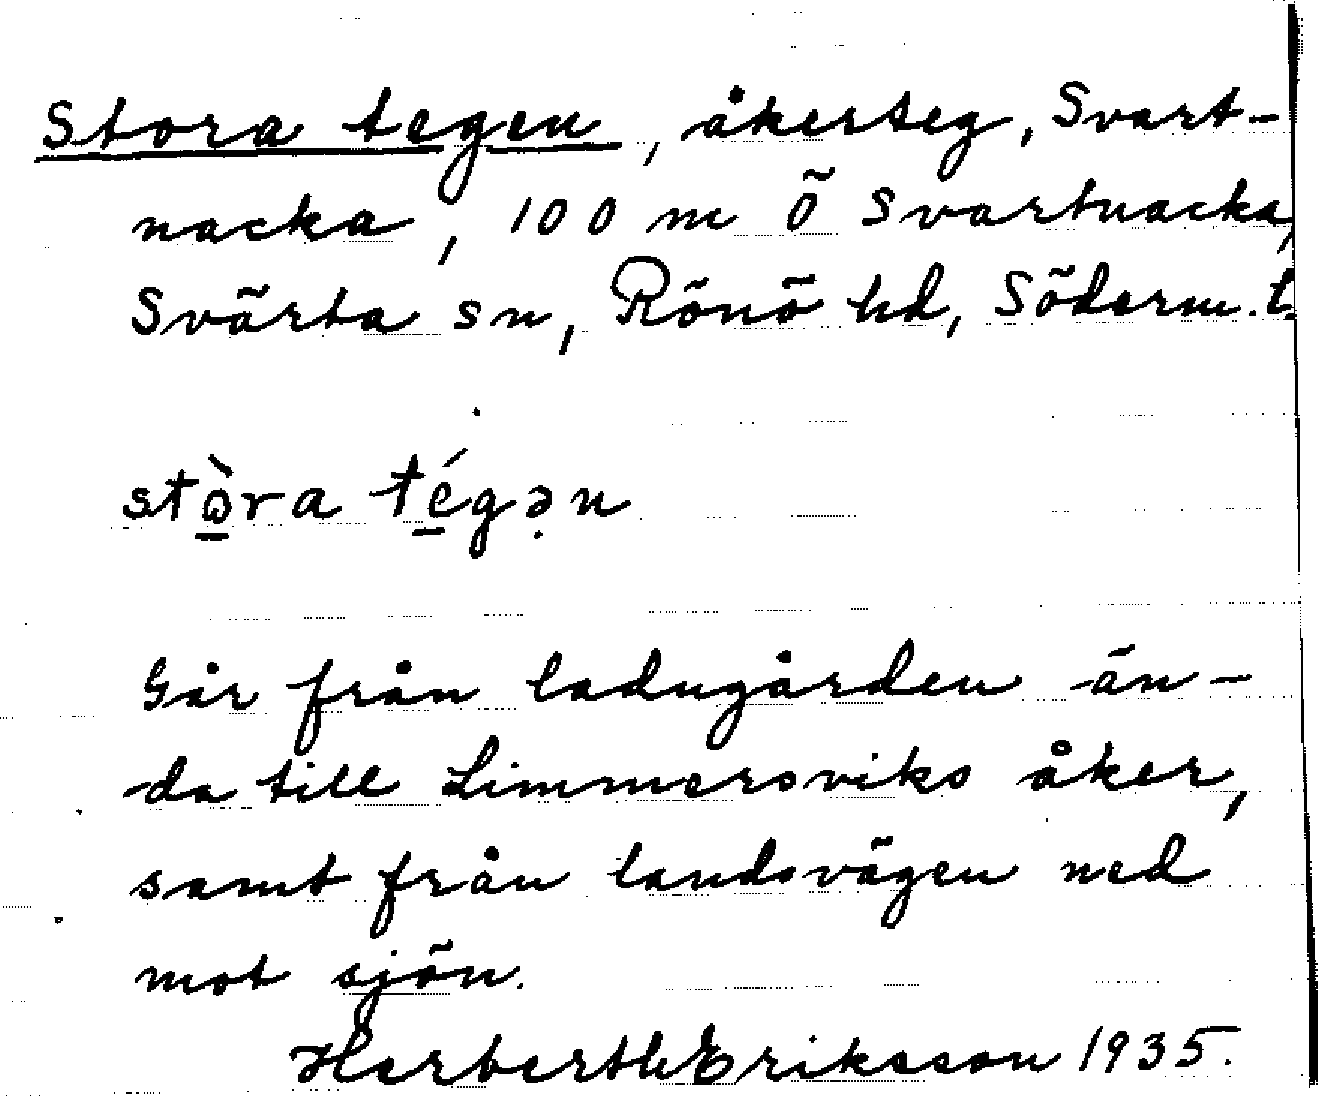 Stora tegen, åkerteg, Svart-
nacka, 100 m Ö Svartnacka,
Svärta sn, Rönö hd, Söderm. l.
stò̱ra té̱gə̣n
Går från ladugården än-
da till Limmersviks åker,
samt från landsvägen ned
mot sjön.
Herbert Eriksson 1935.